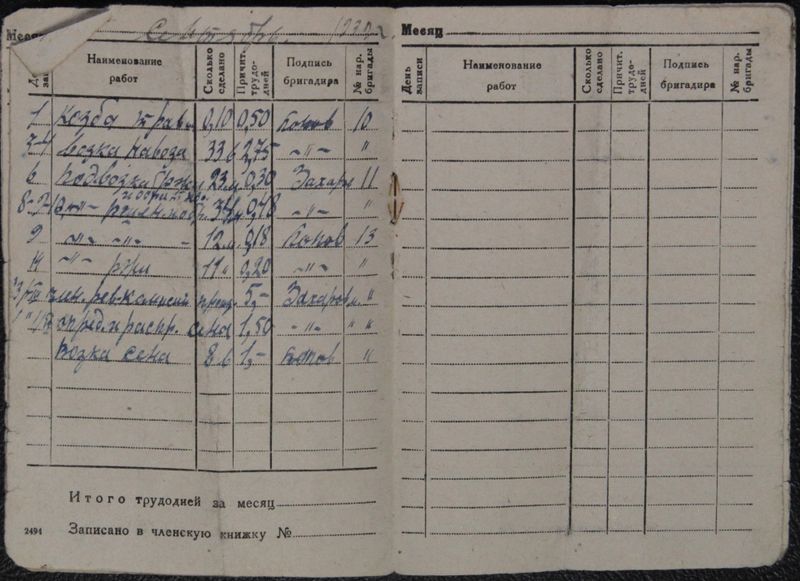 Месяц Сентябрь
День записи Наименование работ Сколько сделано Причит. трудодней Подпись бригадира № нар. бригады
1 Козба трав 0,10 0,50 Попов 10
3-4 Возка навоза 33 в 2,75 -"- "
6 Подвозка 23 м 0,30 Захаров 11
8- -"- 0,48 -"- "
9 -"- -"- - 12 м 0,18 Попов 13
14 -"- ржи 11 " 0,20 -"- "
член. рев. комиссии 5,- Захаров "
опред. и распр. сена 1,50 -"- " "
Возка сена 8 в 1,- Попов "
Итого трудодней за месяц
2494 Записано в членскую книжку №
Месяц
День записи Наименование работ Сколько сделано Причит. трудодней Подпись бригадира № нар. бригады